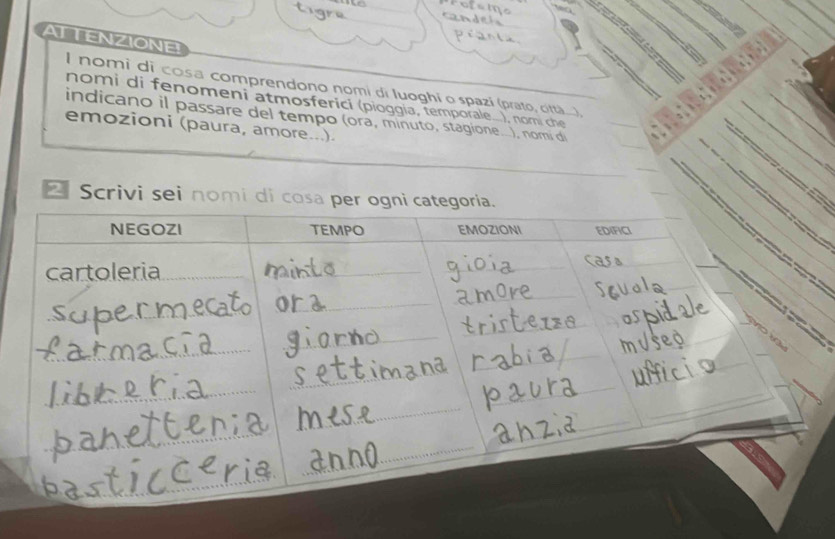 tigre
candela
pianta
ATTENZIONE!
I nomi di cosa comprendono nomi di luoghi o spazi (prato, città...),
nomi di fenomeni atmosferici (pioggia, temporale...), nomi che
indicano il passare del tempo (ora, minuto, stagione...), nomi di
emozioni (paura, amore...).
2 Scrivi sei nomi di cosa per ogni categoria.
NEGOZI TEMPO EMOZIONI EDIFICI
cartoleria minto gioia casa
supermecato ora amore scuola
farmacia giorno tristezza ospidale
libreria settimana rabia museo
panetteria mese paura ufficio
pasticceria anno anzia